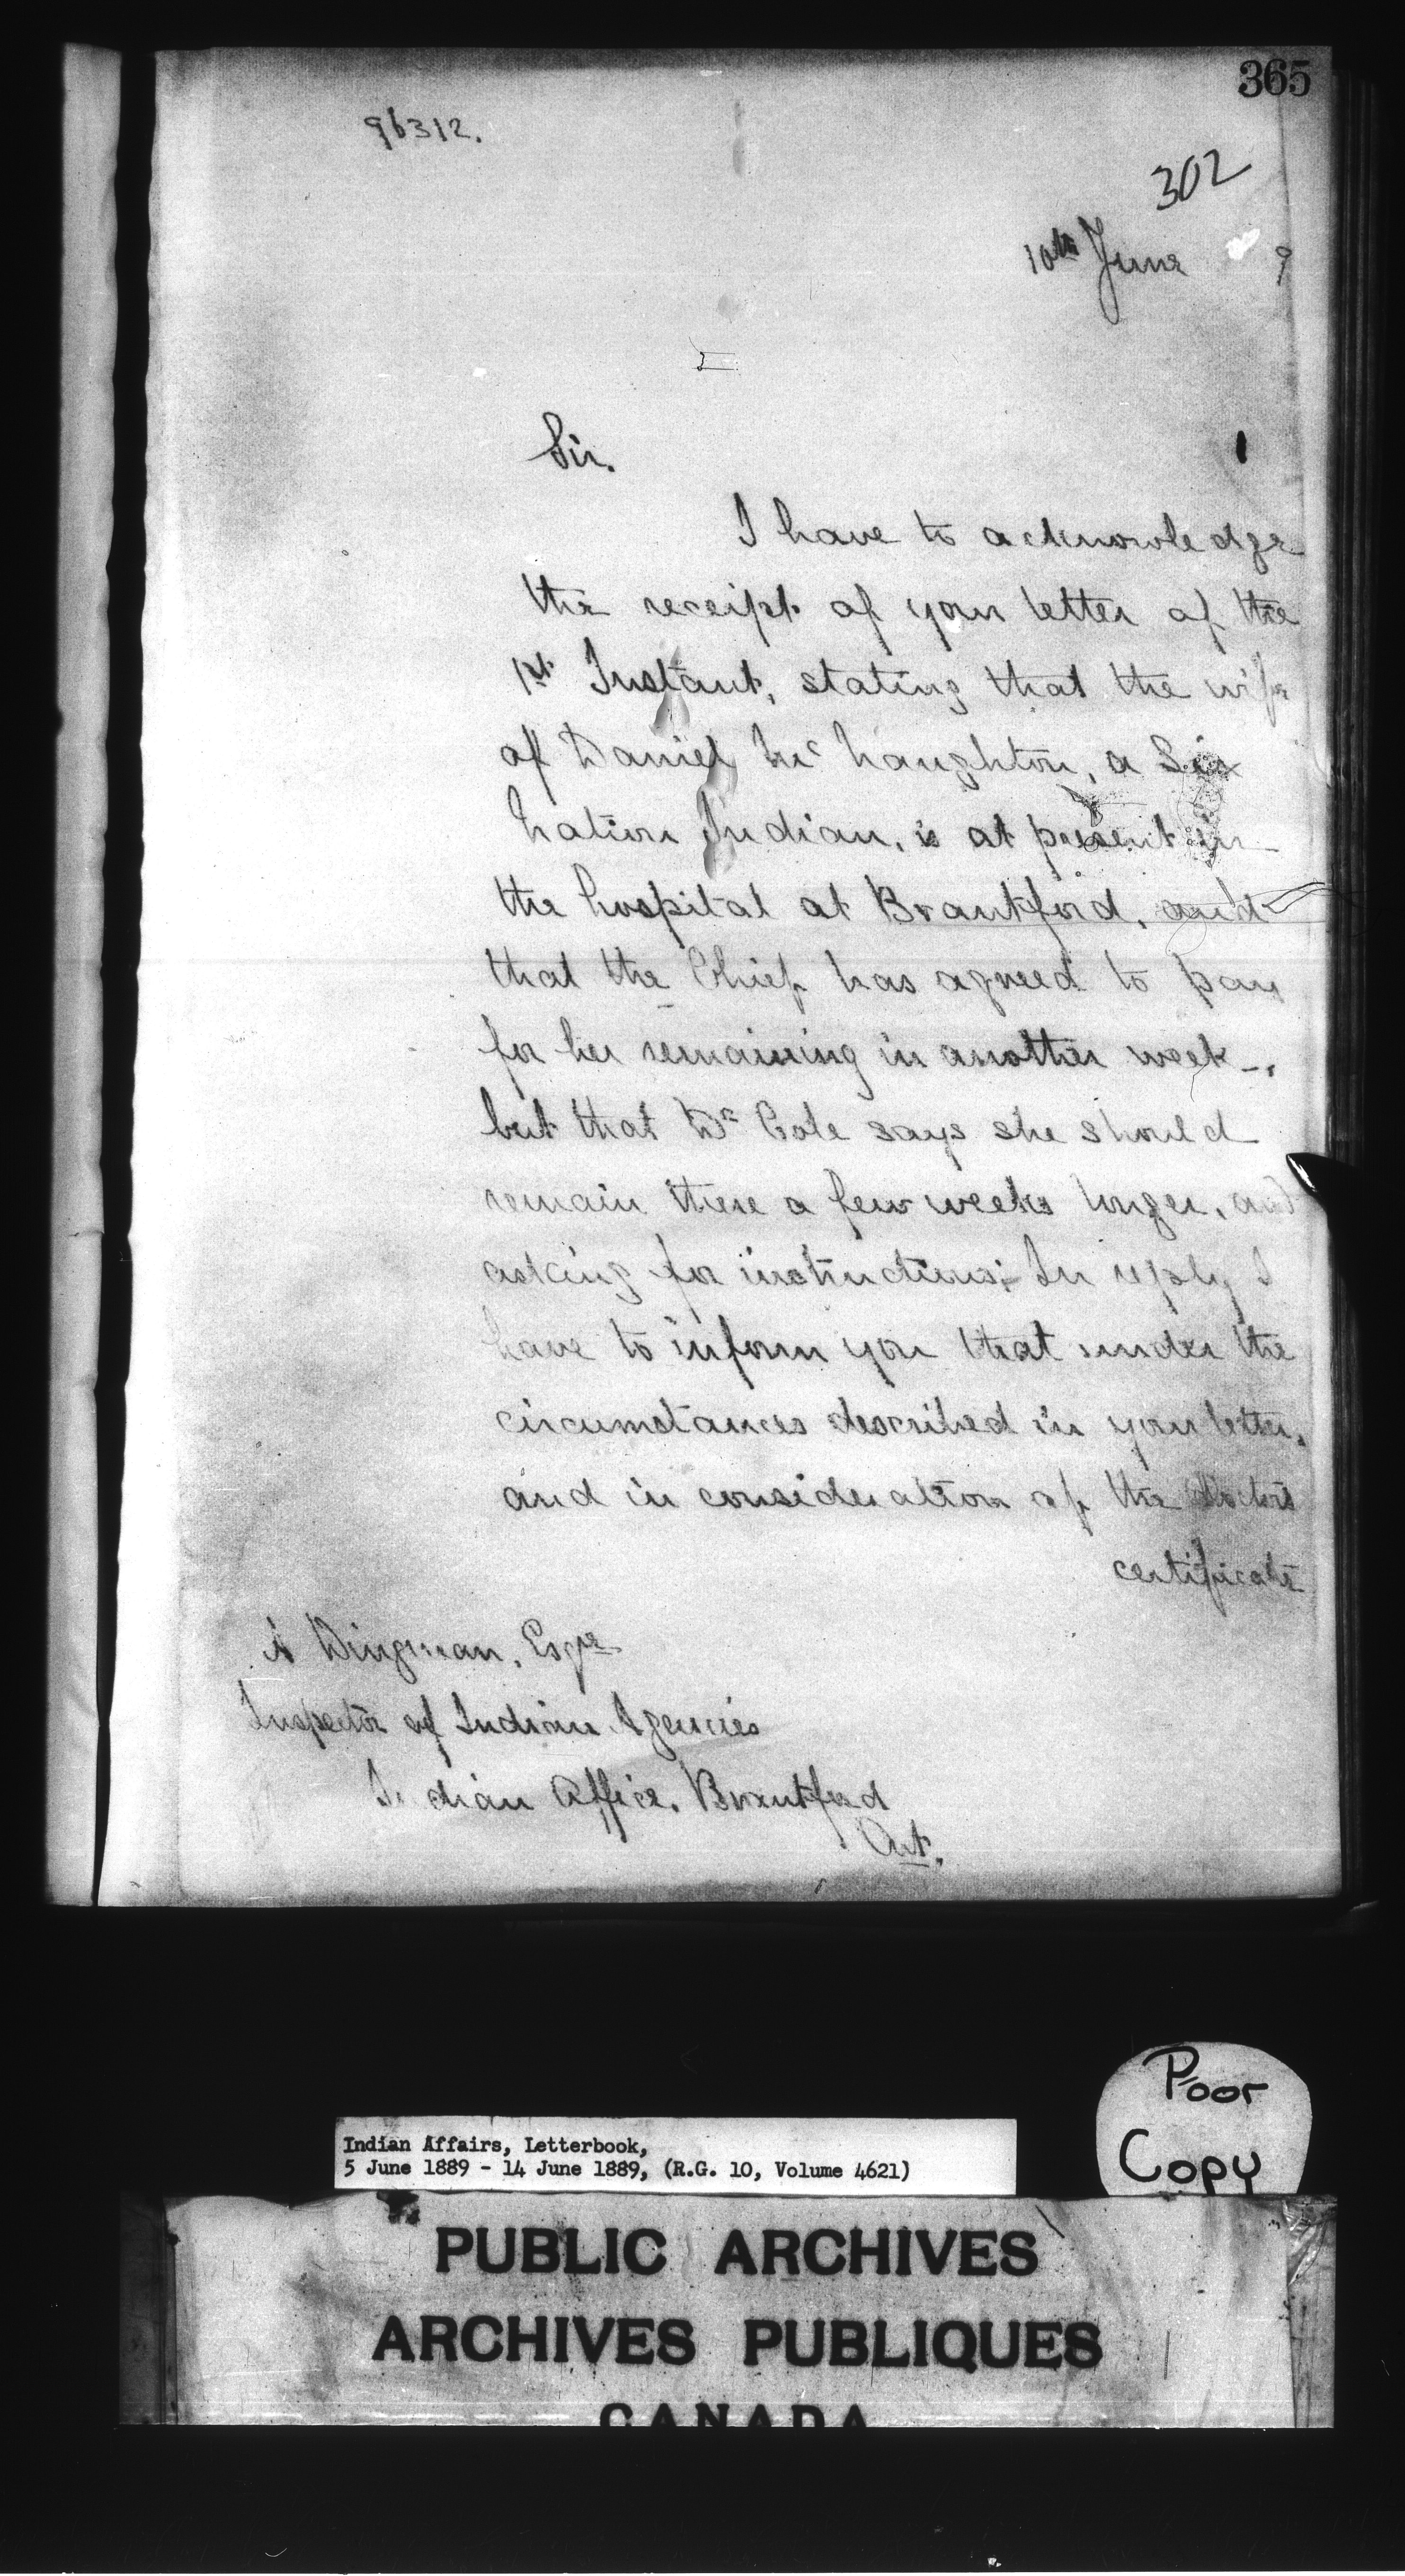 365
96312.
302
10th June 9
Sir.
I have to acknowledge
the receipt of your letter of the
1st Instant, stating that the wife
of Daniel McNaughton, a Six
Nation Indian, is at present in
the hospital at Brantford, and
that the Chief has agreed to pay
for her remaining in another week-,
but that Dr Cole says she should
remain there a few weeks longer, and
asking for instructions;- In reply I
have to inform you that under the
circumstances described in your letter,
and in consideration of the doctors
certificate
A Dingman, Esqre
Inspector of Indian Agencies
Indian Office, Brantford
Ont.
Poor
Copy
Indian Affairs, Letterbook,
5 June 1889 - 14 June 1889, (R.G. 10, Volume 4621)
PUBLIC ARCHIVES
ARCHIVES PUBLIQUES
CANADA